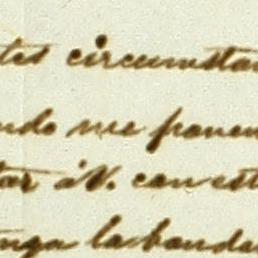 tes circunstan
ndo me ponen
tar á V. con est
nga la bonda